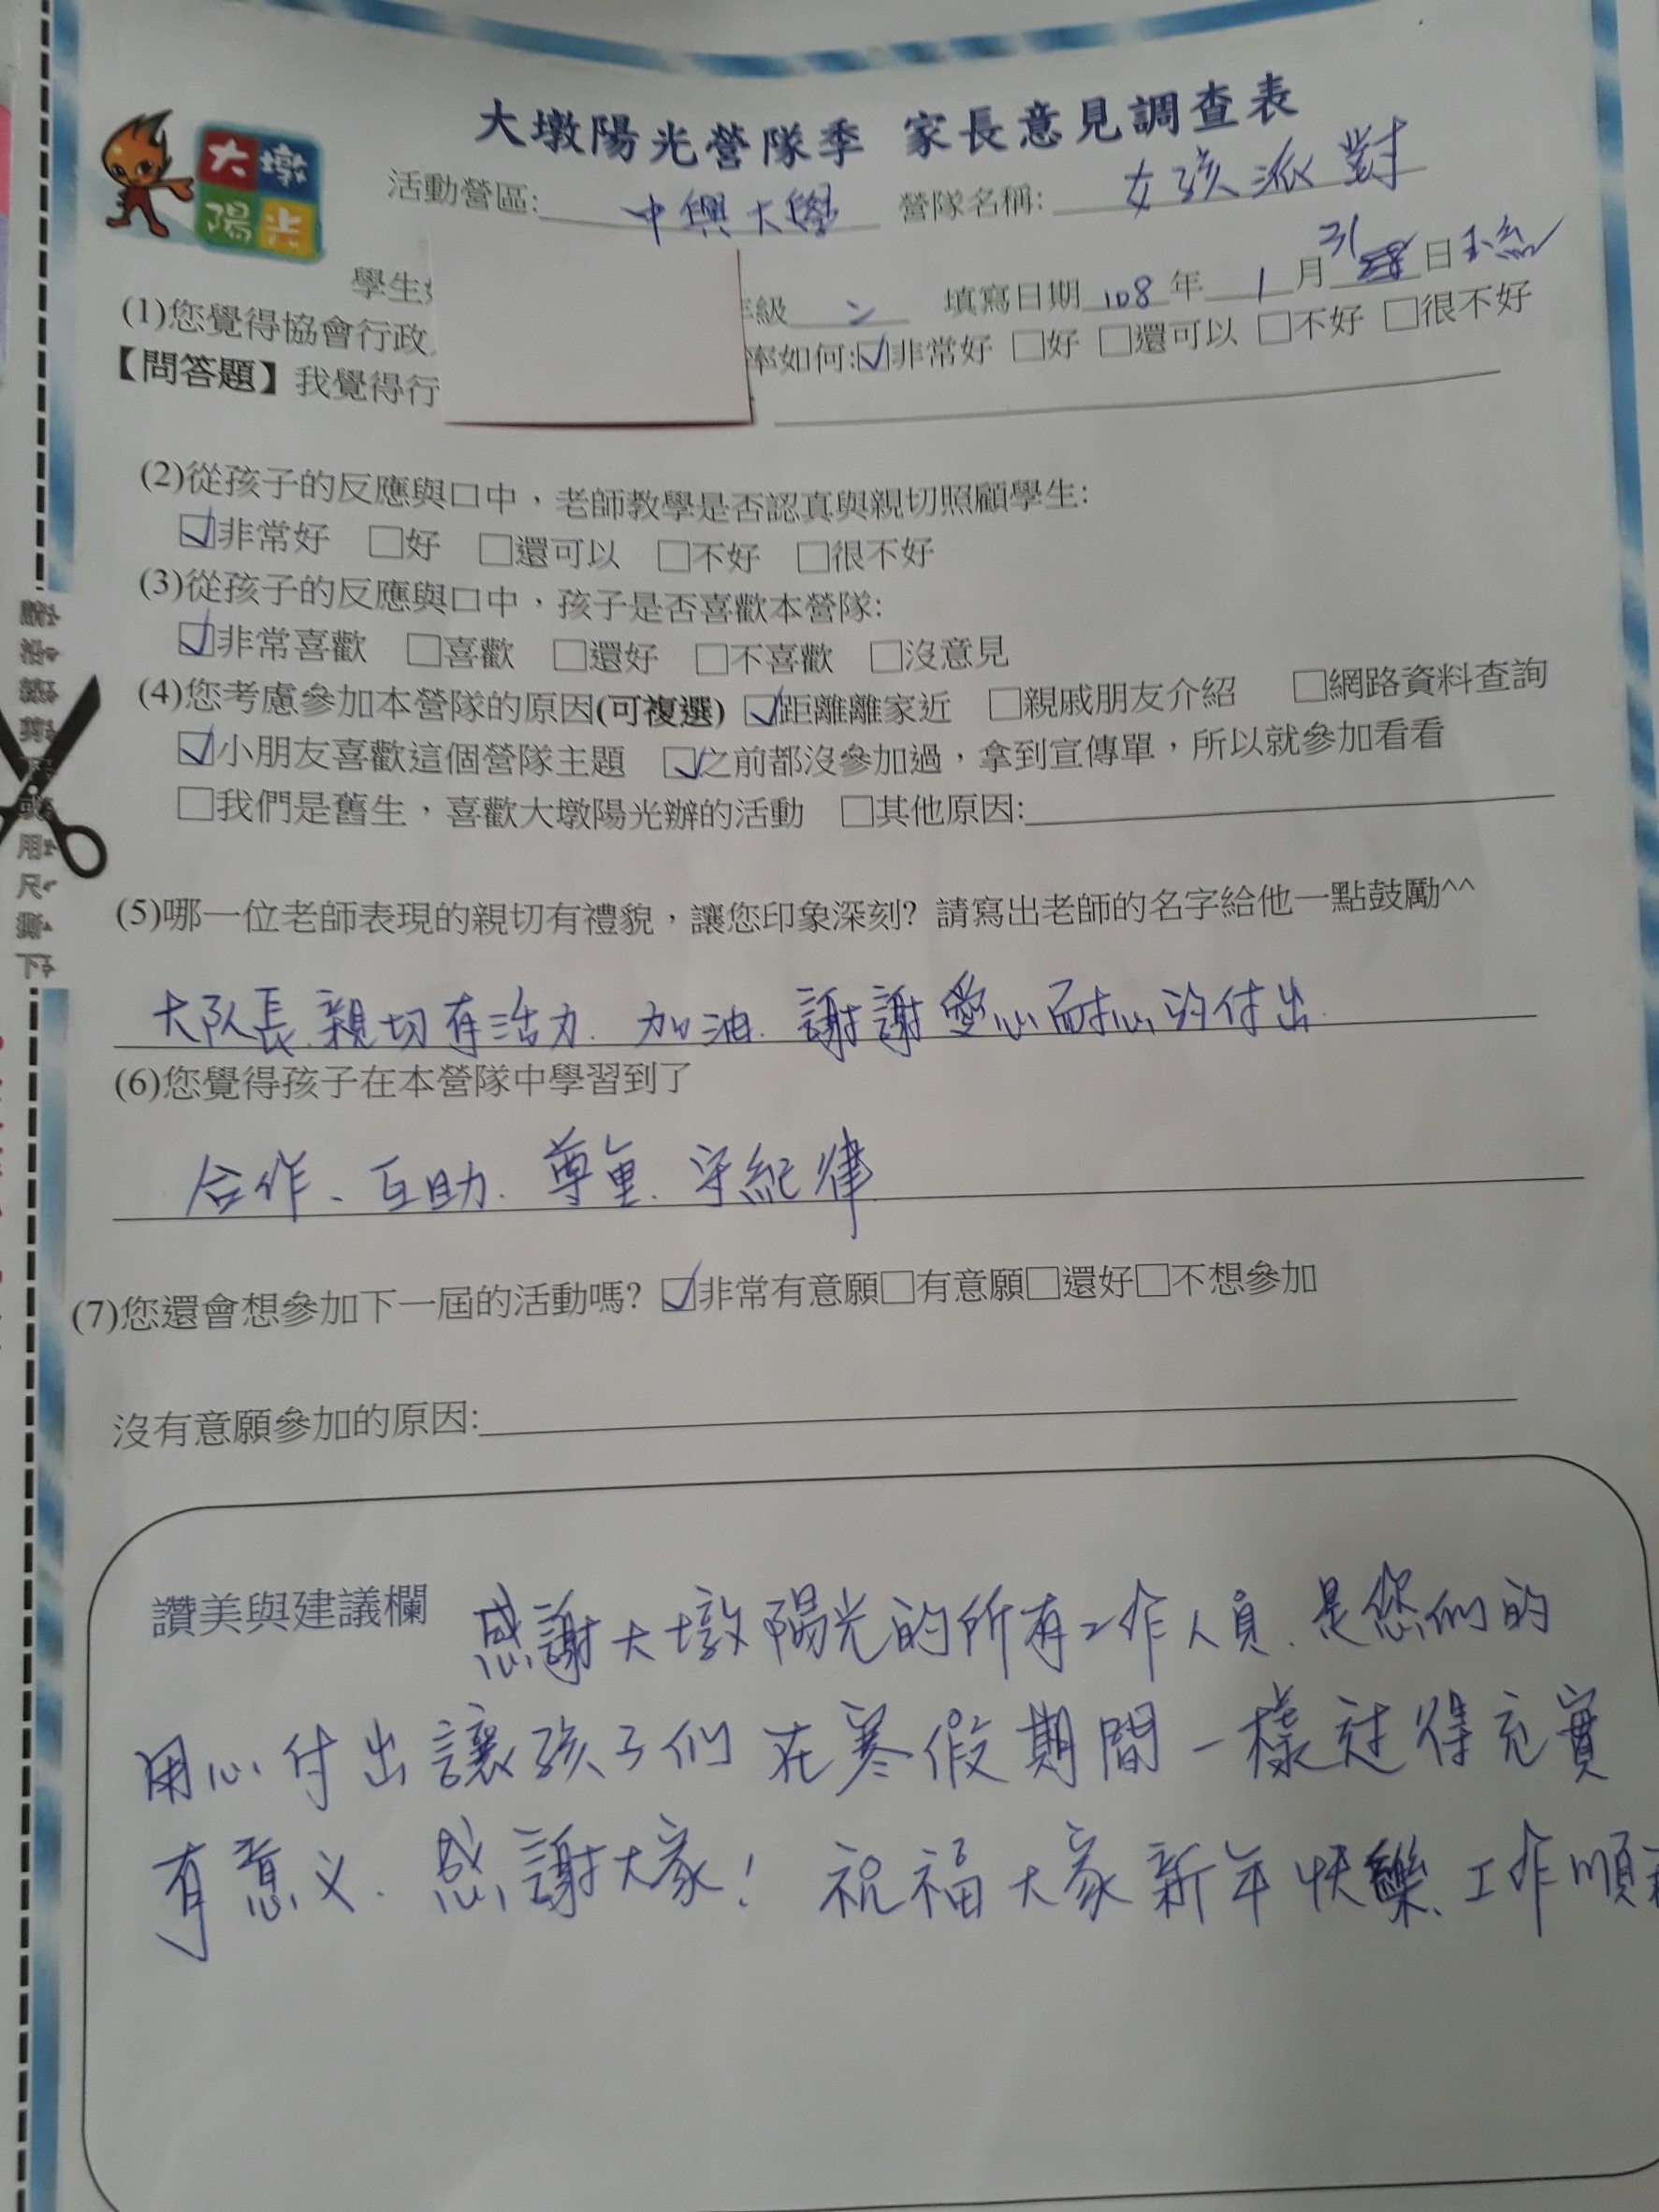 大墩陽光
大墩陽光營隊季 家長意見調查表
活動營區: 中興大學 營隊名稱: 女孩派對
學生 年級 二 填寫日期 108 年 1 月 31 日
(1)您覺得協會行政 率如何:☑非常好 □好 □還可以 □不好 □很不好
【問答題】我覺得行
(2)從孩子的反應與口中，老師教學是否認真與親切照顧學生:
☑非常好 □好 □還可以 □不好 □很不好
(3)從孩子的反應與口中，孩子是否喜歡本營隊:
☑非常喜歡 □喜歡 □還好 □不喜歡 □沒意見
(4)您考慮參加本營隊的原因(可複選) ☑距離離家近 □親戚朋友介紹 □網路資料查詢
☑小朋友喜歡這個營隊主題 ☑之前都沒參加過，拿到宣傳單，所以就參加看看
□我們是舊生，喜歡大墩陽光辦的活動 □其他原因:
(5)哪一位老師表現的親切有禮貌，讓您印象深刻? 請寫出老師的名字給他一點鼓勵^^
大队長.親切有活力. 加油. 謝謝愛心耐心的付出.
(6)您覺得孩子在本營隊中學習到了
合作、互助. 尊重. 守紀律.
(7)您還會想參加下一屆的活動嗎? ☑非常有意願□有意願□還好□不想參加
沒有意願參加的原因:
讚美與建議欄 感謝大墩陽光的所有工作人員. 是您們的
用心付出讓孩子們在寒假期間一樣过得充實
有意义. 感謝大家! 祝福大家新年快樂. 工作順